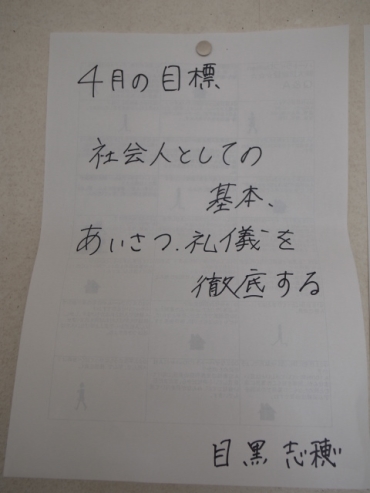 4月の目標
社会人としての
基本、
あいさつ、礼儀を
徹底する
目黒 志穂